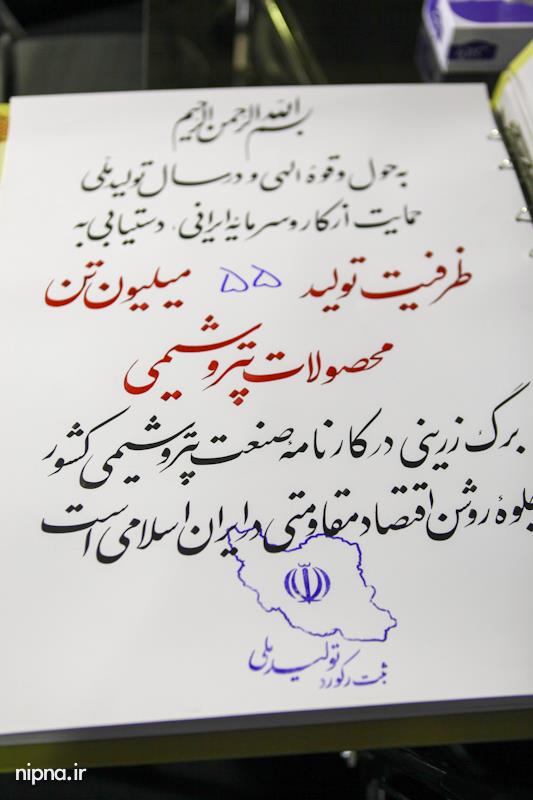 بسم الله الرحمن الرحیم
به حول و قوهٔ الهی و در سال تولید ملی
حمایت از کار و سرمایهٔ ایرانی، دستیابی به
ظرفیت تولید ۵۵ میلیون تن
محصولات پتروشیمی
برگ زرینی در کارنامهٔ صنعت پتروشیمی کشور
جلوهٔ روشن اقتصاد مقاومتی در ایران اسلامی است
تولید ملی
ثبت رکورد
nipna.ir